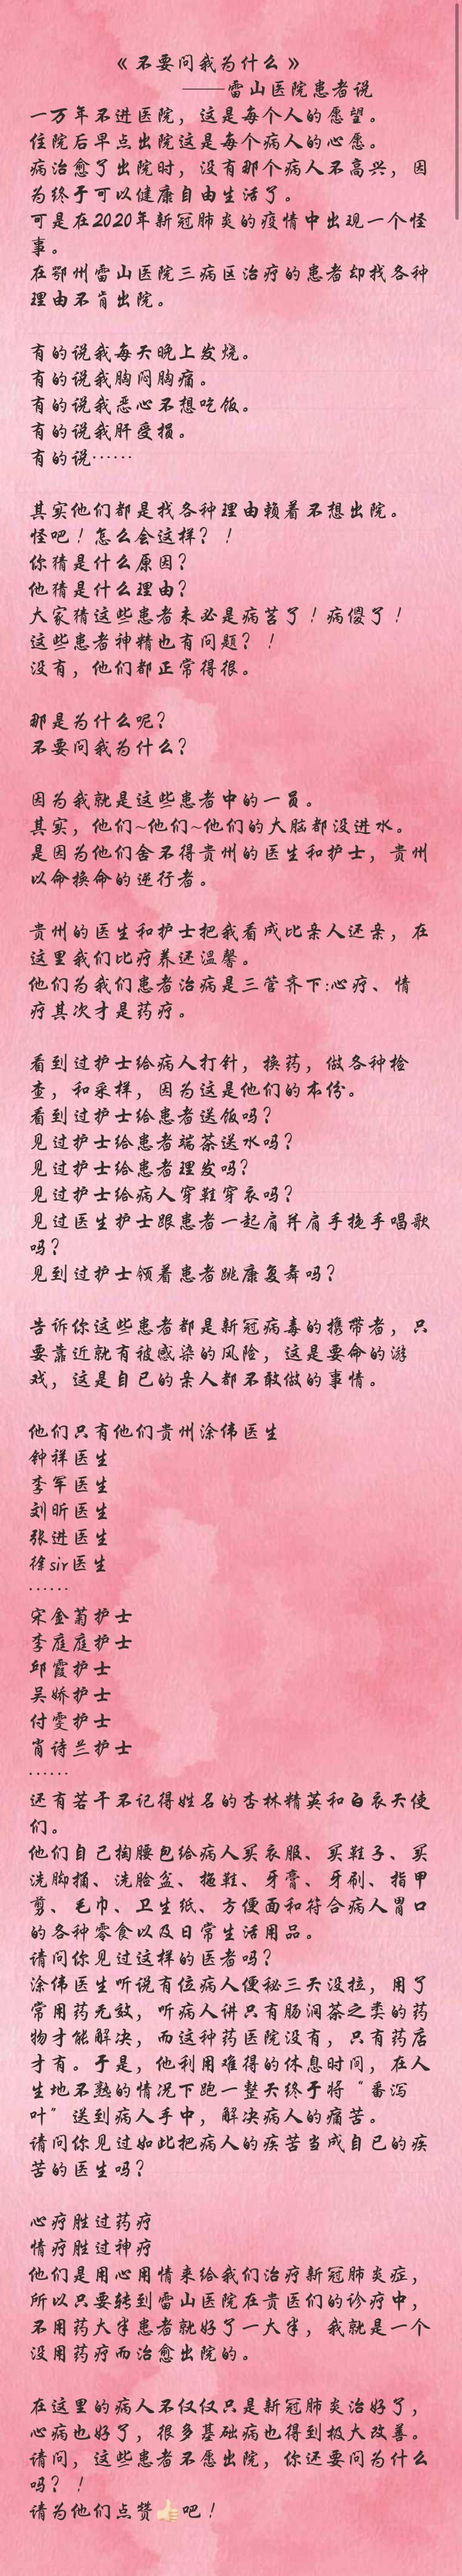 《不要问我为什么》
——雷山医院患者说
一万年不进医院，这是每个人的愿望。
住院后早点出院这是每个病人的心愿。
病治愈了出院时，没有那个病人不高兴，因
为终于可以健康自由生活了。
可是在2020年新冠肺炎的疫情中出现一个怪
事。
在鄂州雷山医院三病区治疗的患者却找各种
理由不肯出院。
有的说我每天晚上发烧。
有的说我胸闷胸痛。
有的说我恶心不想吃饭。
有的说我肝受损。
有的说……
其实他们都是找各种理由赖着不想出院。
怪吧！怎么会这样？！
你猜是什么原因？
他猜是什么理由？
大家猜这些患者未必是病苦了！病傻了！
这些患者神精也有问题？！
没有，他们都正常得很。
那是为什么呢？
不要问我为什么？
因为我就是这些患者中的一员。
其实，他们~他们~他们的大脑都没进水。
是因为他们舍不得贵州的医生和护士，贵州
以命换命的逆行者。
贵州的医生和护士把我看成比亲人还亲，在
这里我们比疗养还温馨。
他们为我们患者治病是三管齐下:心疗、情
疗其次才是药疗。
看到过护士给病人打针，换药，做各种检
查，和采样，因为这是他们的本份。
看到过护士给患者送饭吗？
见过护士给患者端茶送水吗？
见过护士给患者理发吗？
见过护士给病人穿鞋穿衣吗？
见过医生护士跟患者一起肩并肩手挽手唱歌
吗？
见到过护士领着患者跳康复舞吗？
告诉你这些患者都是新冠病毒的携带者，只
要靠近就有被感染的风险，这是要命的游
戏，这是自已的亲人都不敢做的事情。
他们只有他们贵州涂伟医生
钟祥医生
李军医生
刘昕医生
张进医生
徐sir医生
……
宋金菊护士
李庭庭护士
邱霞护士
吴娇护士
付雯护士
肖诗兰护士
……
还有若干不记得姓名的杏林精英和白衣天使
们。
他们自己掏腰包给病人买衣服、买鞋子、买
洗脚桶、洗脸盆、拖鞋、牙膏、牙刷、指甲
剪、毛巾、卫生纸、方便面和符合病人胃口
的各种零食以及日常生活用品。
请问你见过这样的医者吗？
涂伟医生听说有位病人便秘三天没拉，用了
常用药无效，听病人讲只有肠润茶之类的药
物才能解决，而这种药医院没有，只有药店
才有。于是，他利用难得的休息时间，在人
生地不熟的情况下跑一整天终于将“番泻
叶”送到病人手中，解决病人的痛苦。
请问你见过如此把病人的疾苦当成自已的疾
苦的医生吗？
心疗胜过药疗
情疗胜过神疗
他们是用心用情来给我们治疗新冠肺炎症，
所以只要转到雷山医院在贵医们的诊疗中，
不用药大半患者就好了一大半，我就是一个
没用药疗而治愈出院的。
在这里的病人不仅仅只是新冠肺炎治好了，
心病也好了，很多基础病也得到极大改善。
请问，这些患者不愿出院，你还要问为什么
吗？！
请为他们点赞👍🏻吧！